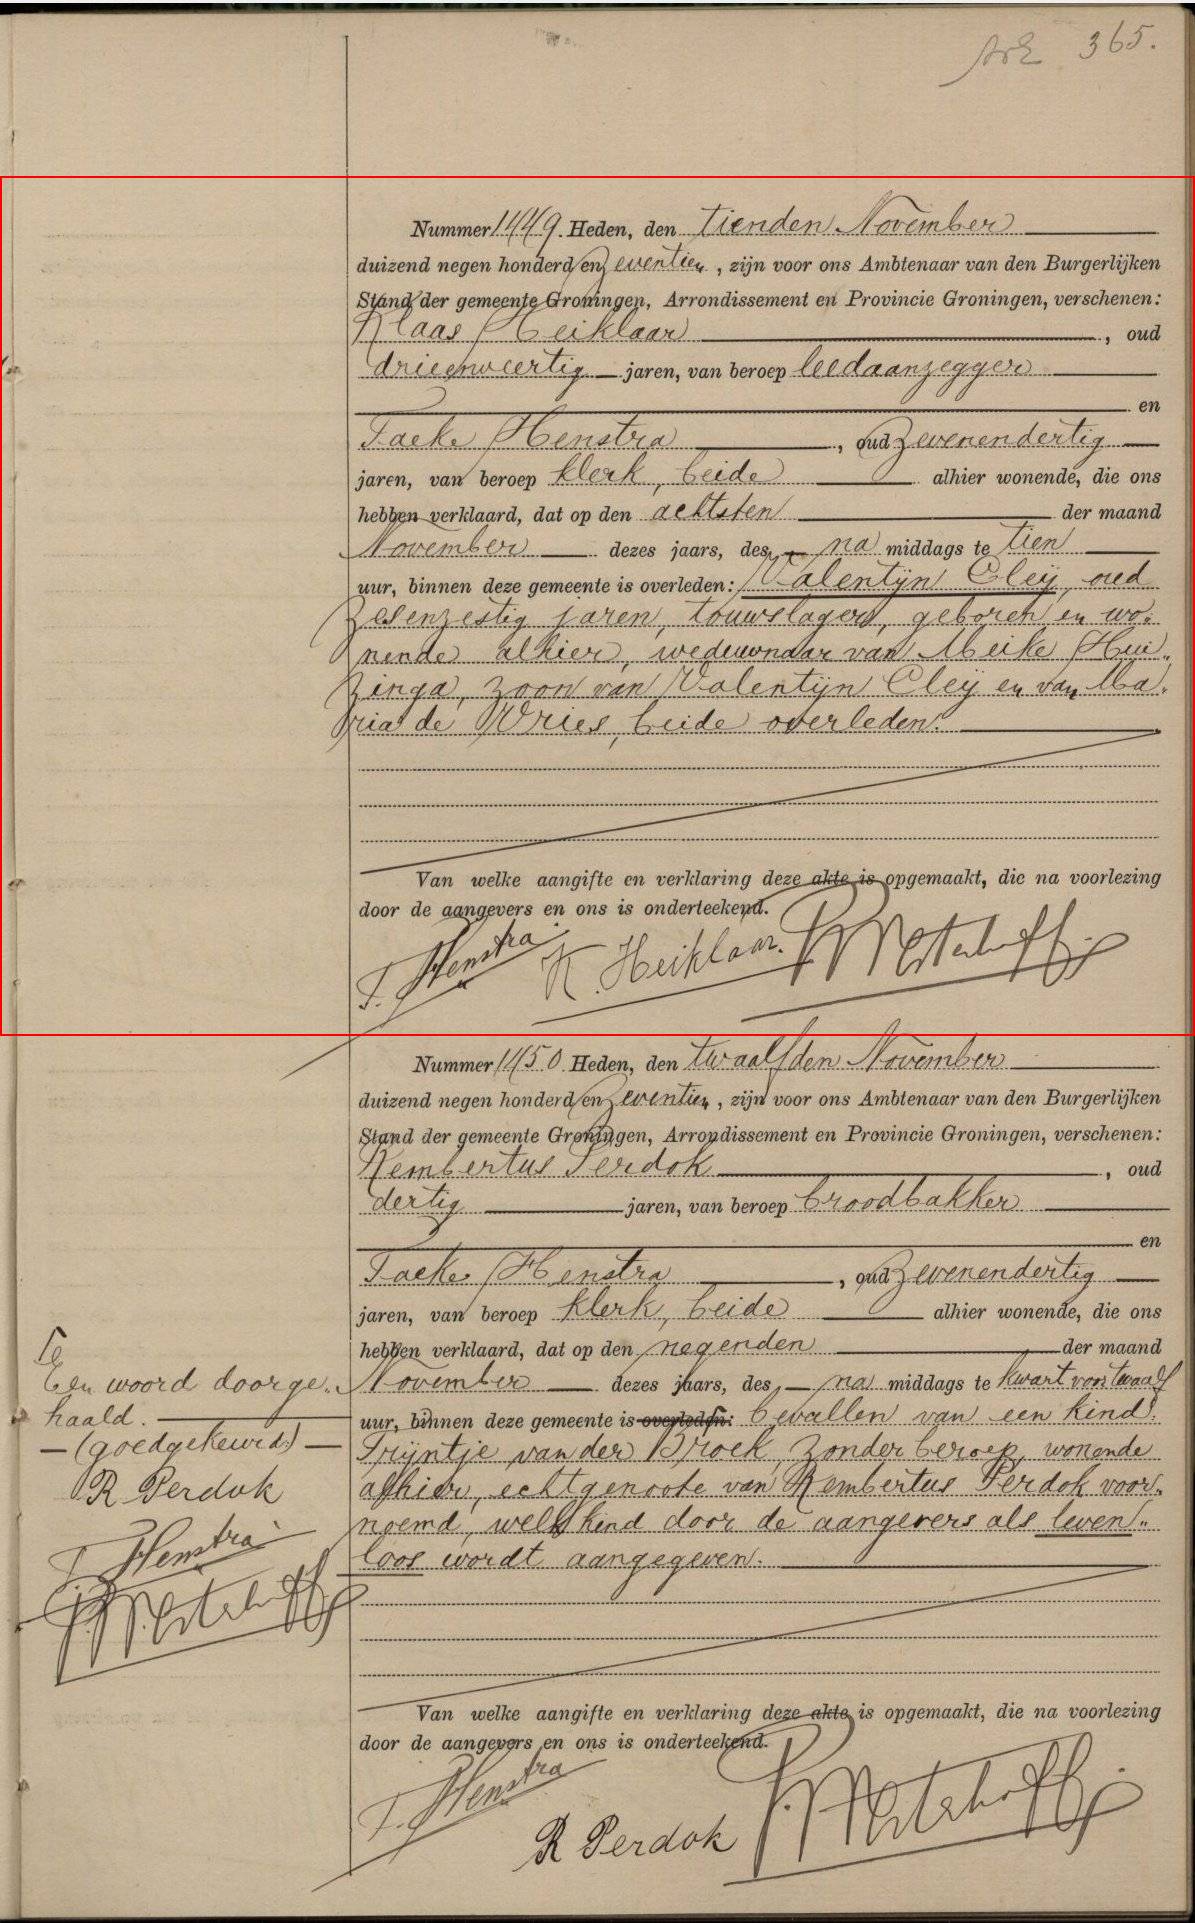 365.
Nummer 1449. Heden, den tienden November
duizend negen honderd en zeventien, zijn voor ons Ambtenaar van den Burgerlijken
Stand der gemeente Groningen, Arrondissement en Provincie Groningen, verschenen:
Klaas Heiklaar, oud
drieenveertig jaren, van beroep leedaanzegger
en
Taeke Henstra, oud zevenendertig
jaren, van beroep klerk, beide alhier wonende, die ons
hebben verklaard, dat op den achtsten der maand
November dezes jaars, des na middags te tien
uur, binnen deze gemeente is overleden: Valentijn Cleij, oud
zesenzestig jaren, touwslager, geboren en wo-
nende alhier, weduwnaar van Meike Hui-
zinga, zoon van Valentijn Cleij en van Ma-
ria de Vries, beide overleden.
Van welke aangifte en verklaring deze akte is opgemaakt, die na voorlezing
door de aangevers en ons is onderteekend.
T. Henstra K. Heiklaar. P. Westerhoff
Nummer 1450 Heden, den twaalfden November
duizend negen honderd en zeventien, zijn voor ons Ambtenaar van den Burgerlijken
Stand der gemeente Groningen, Arrondissement en Provincie Groningen, verschenen:
Rembertus Perdok, oud
dertig jaren, van beroep broodbakker
en
Taeke Henstra, oud zevenendertig
jaren, van beroep klerk, beide alhier wonende, die ons
hebben verklaard, dat op den negenden der maand
November dezes jaars, des na middags te kwart voor twaalf
uur, binnen deze gemeente is overleden: bevallen van een kind:
Trijntje van der Broek, zonder beroep, wonende
alhier, echtgenoote van Rembertus Perdok voor-
noemd, welk kind door de aangevers als leven-
loos wordt aangegeven.
Van welke aangifte en verklaring deze akte is opgemaakt, die na voorlezing
door de aangevers en ons is onderteekend.
T. Henstra
R Perdok
Een woord doorge-
haald.
(goedgekeurd)
R Perdok
T Henstra